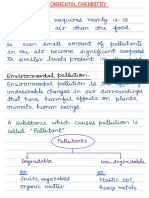 ONMENTAL CHEMISTRY
requires nearly 12-15
air than the food
So even small amount of pollutants
in the air become significant compared
to similar levels present in the
Environmental pollution:
Environmental pollution is the effect of
undesirable changes in our surroundings
that have harmful effects on plants,
animals, human beings.
A substance which causes pollution is
called "Pollutant"
Pollutants
Degradable Non-degradable
ex: ex:
fruits, vegetables Plastic, DDT,
organic matter heavy metals